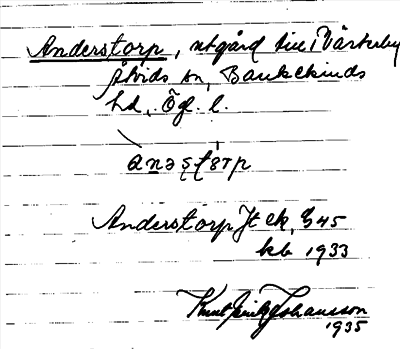 Anderstorp, utgård till Värterby
Åtvids sn, Bankekinds
hd, Ög. l.
anəʂʈɔrp
Anderstorp Jt ek, 945
kb 1933
Knut Johansson
1935